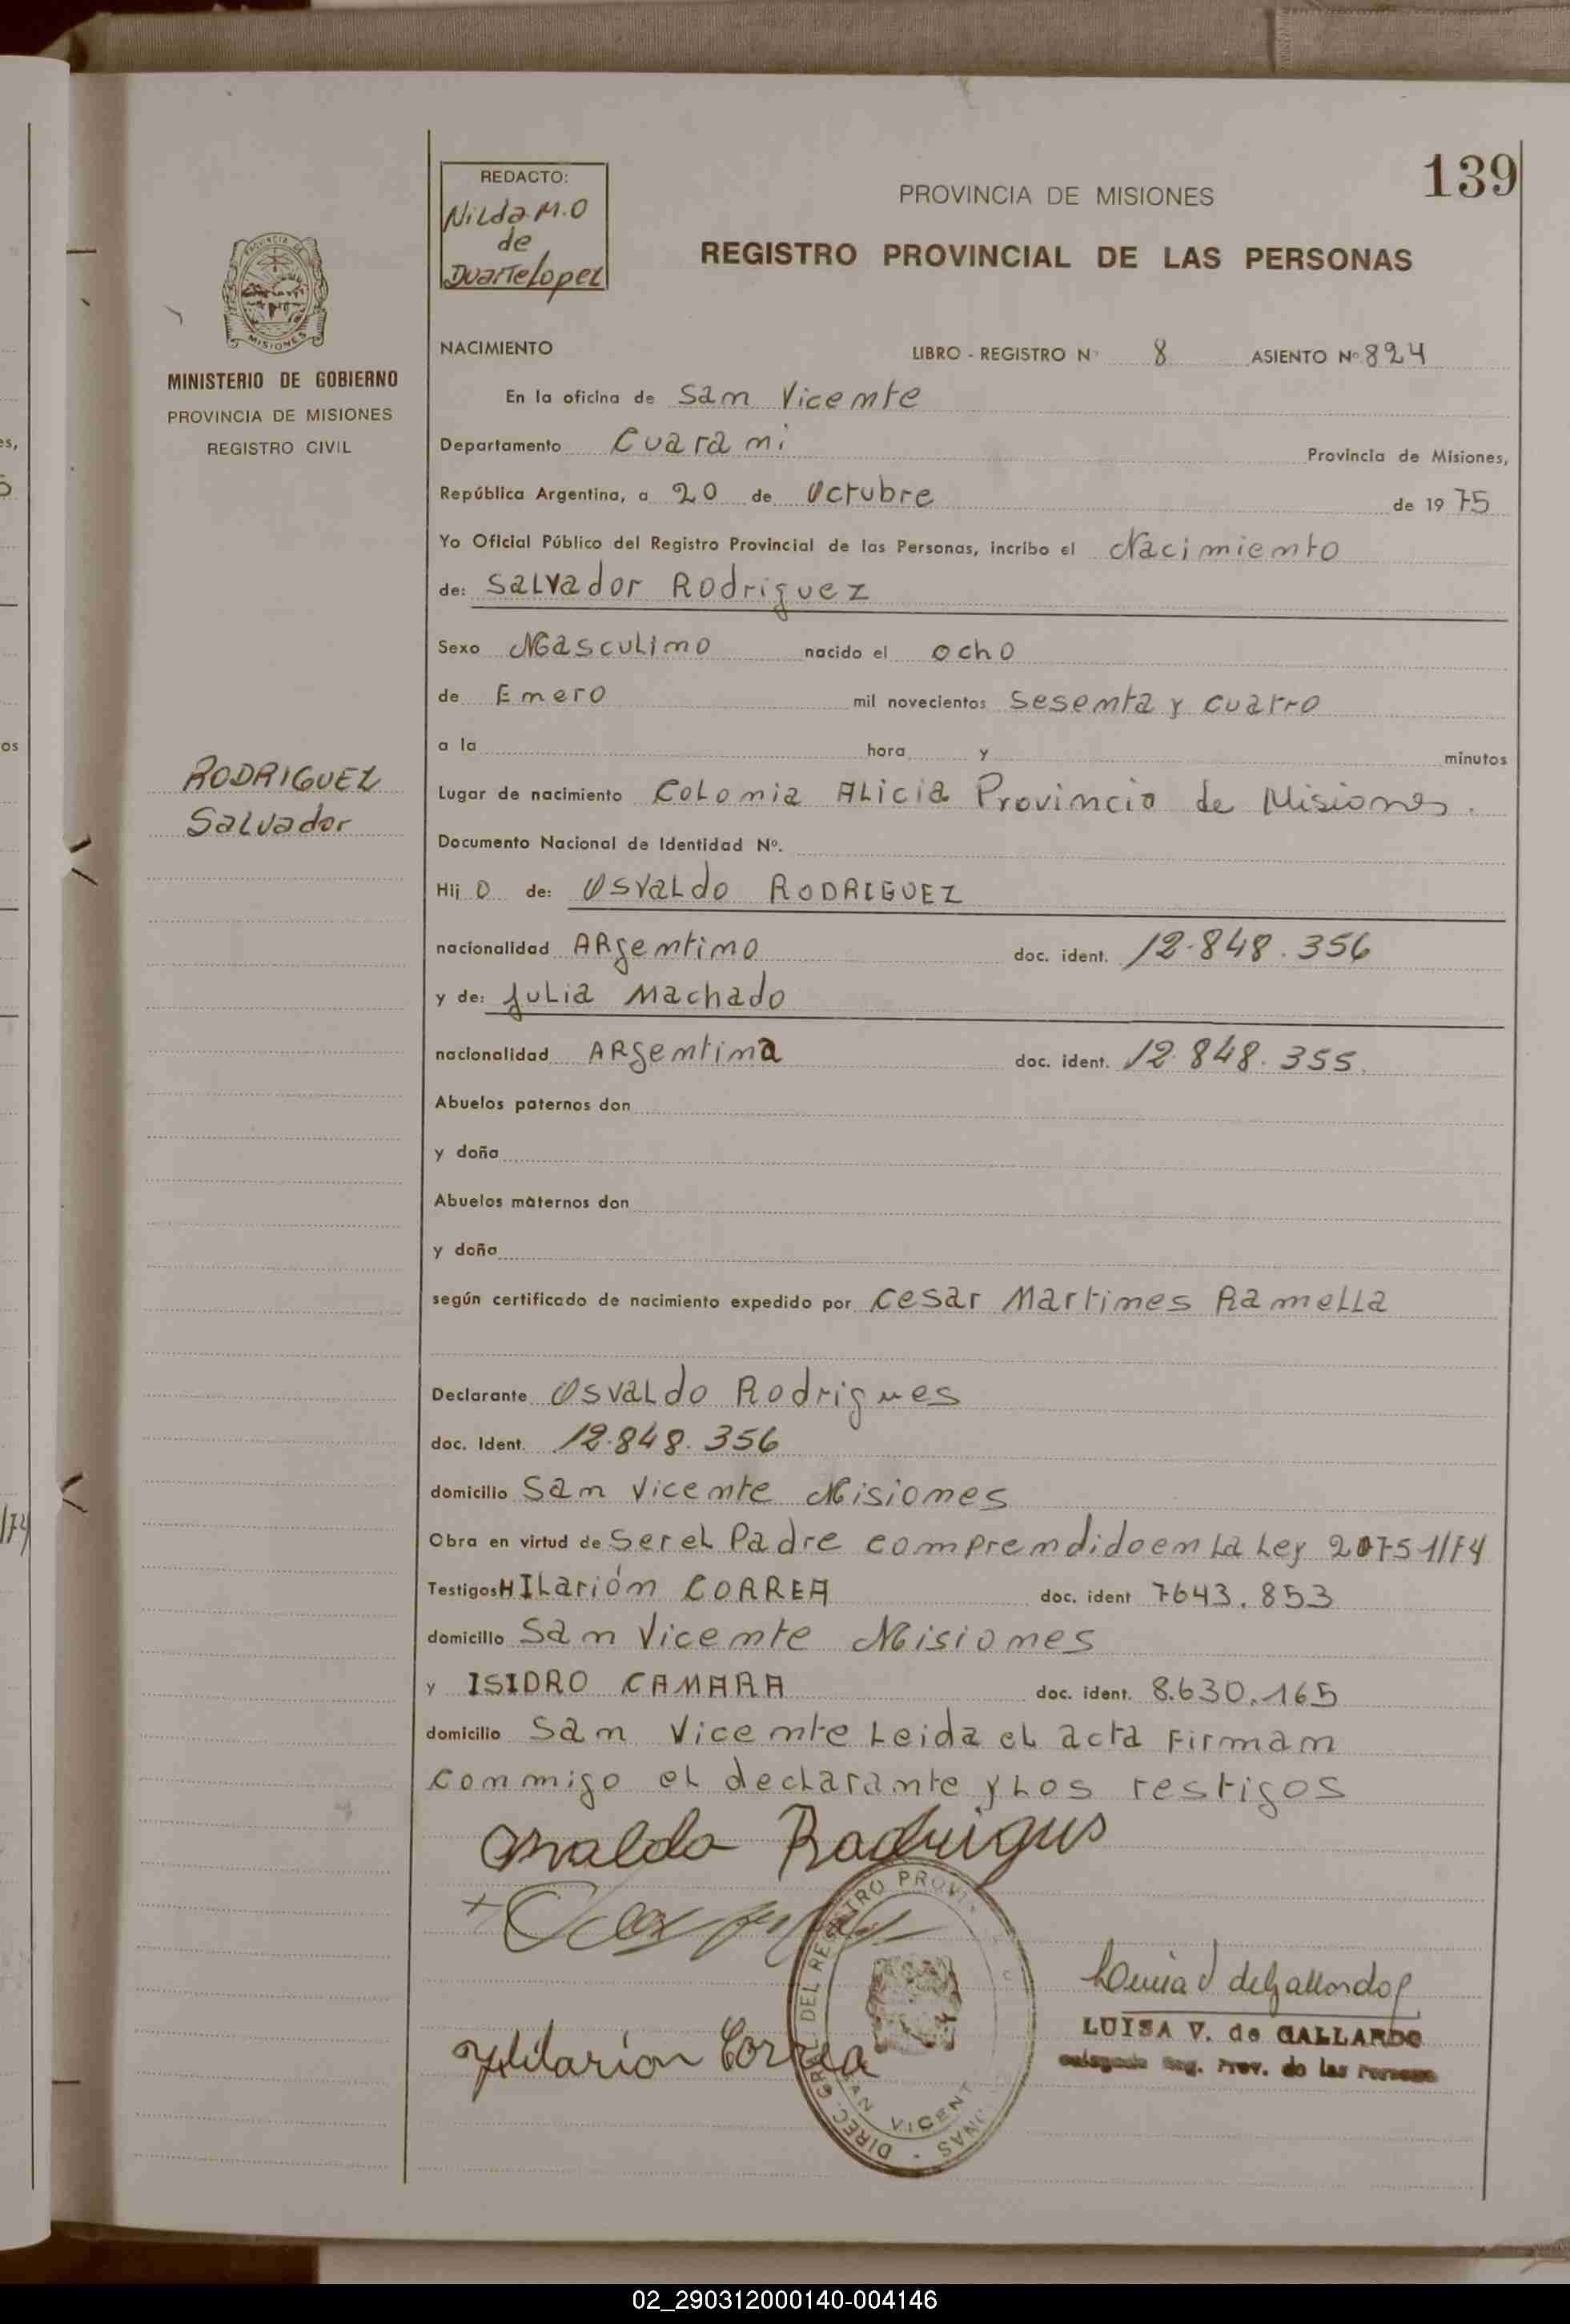 139
REDACTO:
Nilda M.O
de
Duarte Lopez
PROVINCIA DE MISIONES
REGISTRO PROVINCIAL DE LAS PERSONAS
PROVINCIA DE
MISIONES
MINISTERIO DE GOBIERNO
PROVINCIA DE MISIONES
REGISTRO CIVIL
NACIMIENTO LIBRO - REGISTRO Nº 8 ASIENTO Nº 824
En la oficina de San Vicente
Departamento Cuarani Provincia de Misiones,
República Argentina, a 20 de Octubre de 1975
Yo Oficial Público del Registro Provincial de las Personas, incribo el Nacimiento
de: Salvador Rodriguez
Sexo Masculino nacido el ocho
de Enero mil novecientos sesenta y cuatro
a la hora y minutos
RODRIGUEZ
Salvador
Lugar de nacimiento Colonia Alicia Provincia de Misiones.
Documento Nacional de Identidad Nº.
Hij o de: Osvaldo RODRIGUEZ
nacionalidad Argentino doc. ident. 12.848.356
y de: Julia Machado
nacionalidad Argentina doc. ident. 12.848.355.
Abuelos paternos don
y doña
Abuelos maternos don
y doña
según certificado de nacimiento expedido por Cesar Martines Ramella
Declarante Osvaldo Rodrigues
doc. Ident. 12.848.356
domicilio San Vicente Misiones
Obra en virtud de Ser el Padre comprendido en La Ley 20751/74
Testigos HILarión CORREA doc. ident 7643.853
domicilio San Vicente Misiones
y ISIDRO CAMARA doc. ident. 8.630.165
domicilio San Vicente Leida el acta Firman
conmigo el declarante y Los testigos
Osvaldo Rodrigues
Hilarion Correa
DIREC. GRAL. DEL REGISTRO PROVI
SAN VICENT
LUISA V. de GALLARDO
Reg. Prov. de las Personas
02_290312000140-004146